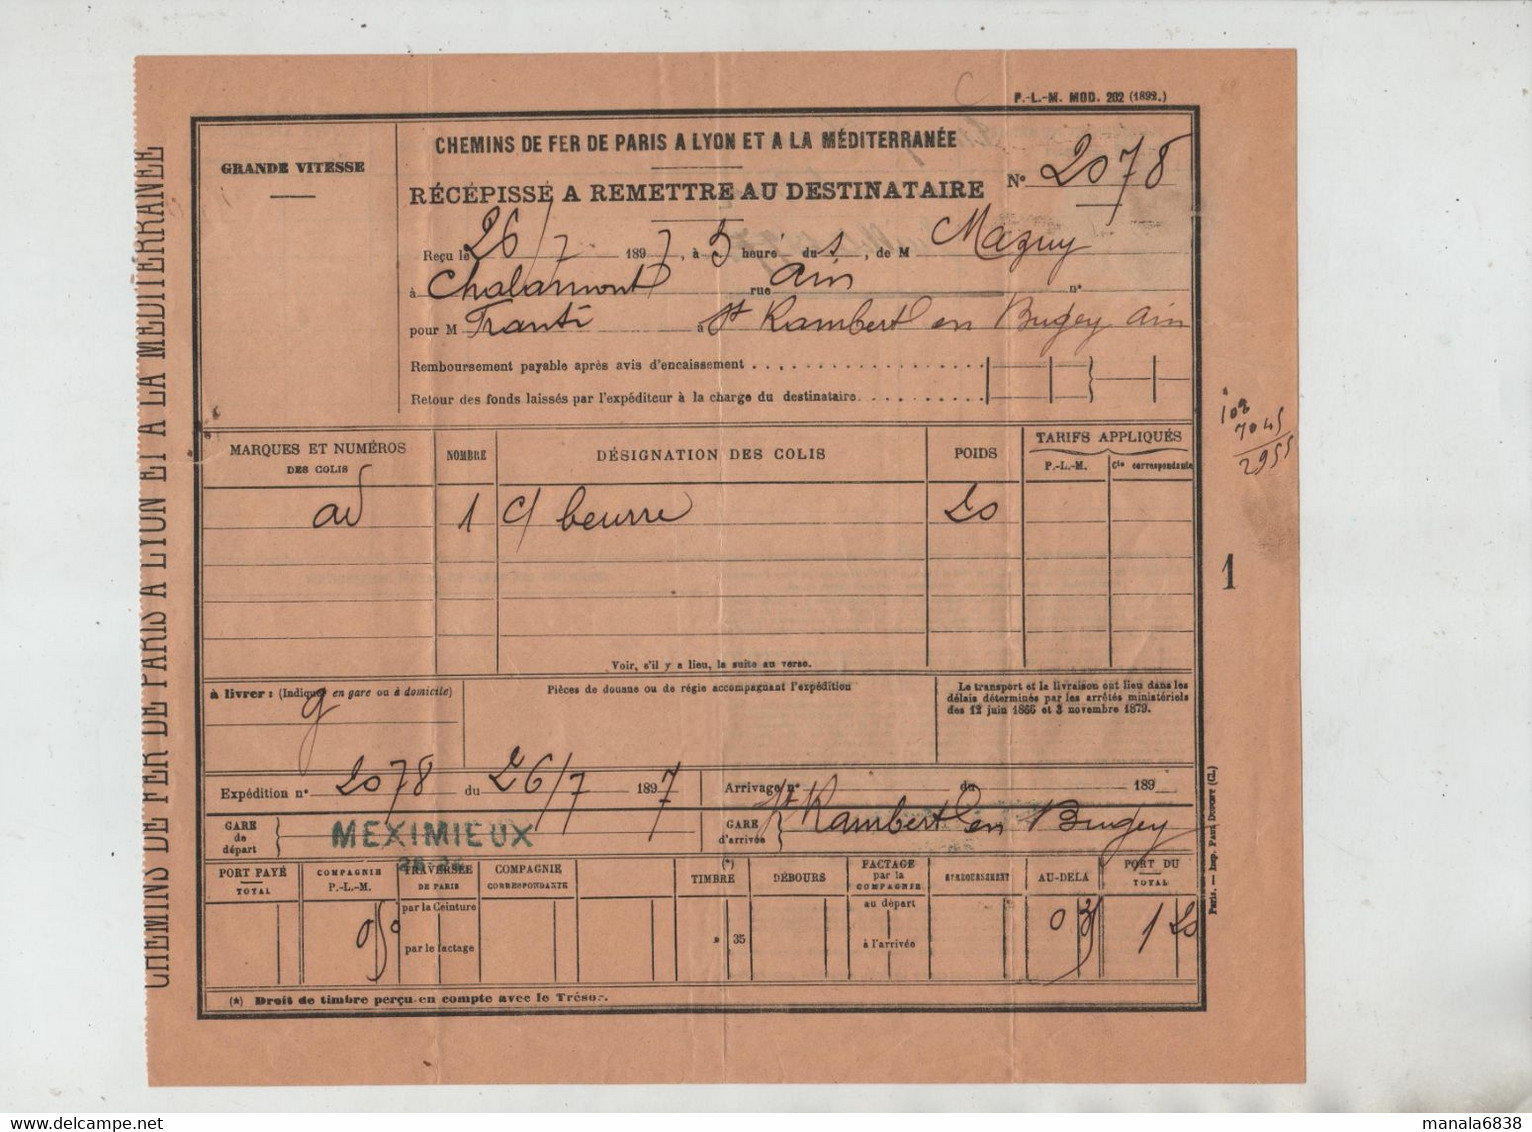 P.-L.-M. MOD. 202 (1892.)
CHEMINS DE FER DE PARIS A LYON ET A LA MÉDITERRANÉE
GRANDE VITESSE
CHEMINS DE FER DE PARIS A LYON ET A LA MÉDITERRANÉE
RÉCÉPISSÉ A REMETTRE AU DESTINATAIRE
N° 2078
Reçu le 26/7 1897, à 5 heure du s, de M Mazuy
à Chalamont rue Ain n°
pour M Franti à St Rambert en Bugey Ain
Remboursement payable après avis d'encaissement
Retour des fonds laissés par l'expéditeur à la charge du destinataire
MARQUES ET NUMÉROS DES COLIS
NOMBRE
DÉSIGNATION DES COLIS
POIDS
TARIFS APPLIQUÉS
P.-L.-M.
Cie correspondante
ad 1 c/ beurre 20
7045
2955
1
Voir, s'il y a lieu, la suite au verso.
à livrer : (Indiquer en gare ou à domicile)
g
Pièces de douane ou de régie accompagnant l'expédition
Le transport et la livraison ont lieu dans les
délais déterminés par les arrêtés ministériels
des 12 juin 1866 et 3 novembre 1879.
Expédition n° 2078 du 26/7 1897
Arrivage n° du 189
GARE de départ
MEXIMIEUX
GARE d'arrivée
St Rambert en Bugey
PORT PAYÉ TOTAL
COMPAGNIE P.-L.-M.
TRAVERSÉE DE PARIS
COMPAGNIE CORRESPONDANTE
(*) TIMBRE
DÉBOURS
FACTAGE par la COMPAGNIE
REMBOURSEMENT
AU-DELA
PORT DU TOTAL
par la Ceinture
par le factage
au départ
à l'arrivée
0 50
» 35
0 35
1 20
(*) Droit de timbre perçu en compte avec le Trésor.
Paris. — Imp. Paul Dupont (Cl.)
manala6838